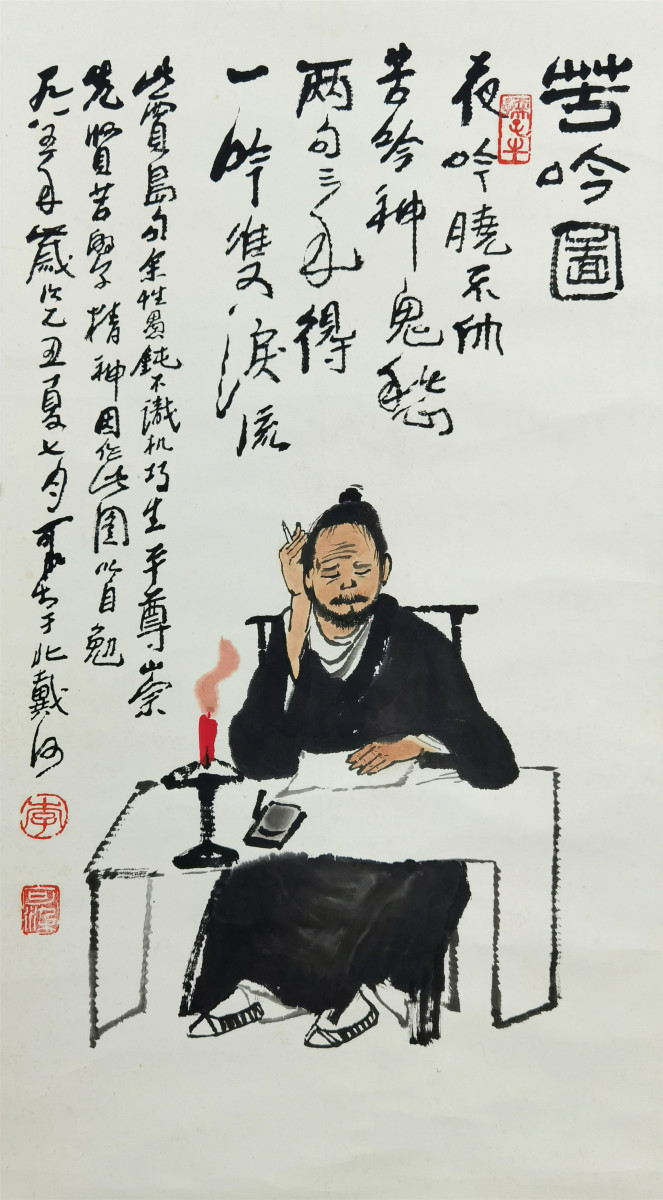 苦吟圖
夜吟曉不休
苦吟神鬼愁
两句三年得
一吟雙淚流
此賈島句余性愚鈍不識机巧生平尊崇
先賢苦學精神因作此圖以自勉
一九八五年歲次乙丑夏七月可染於北戴河
孺子牛
李
可染